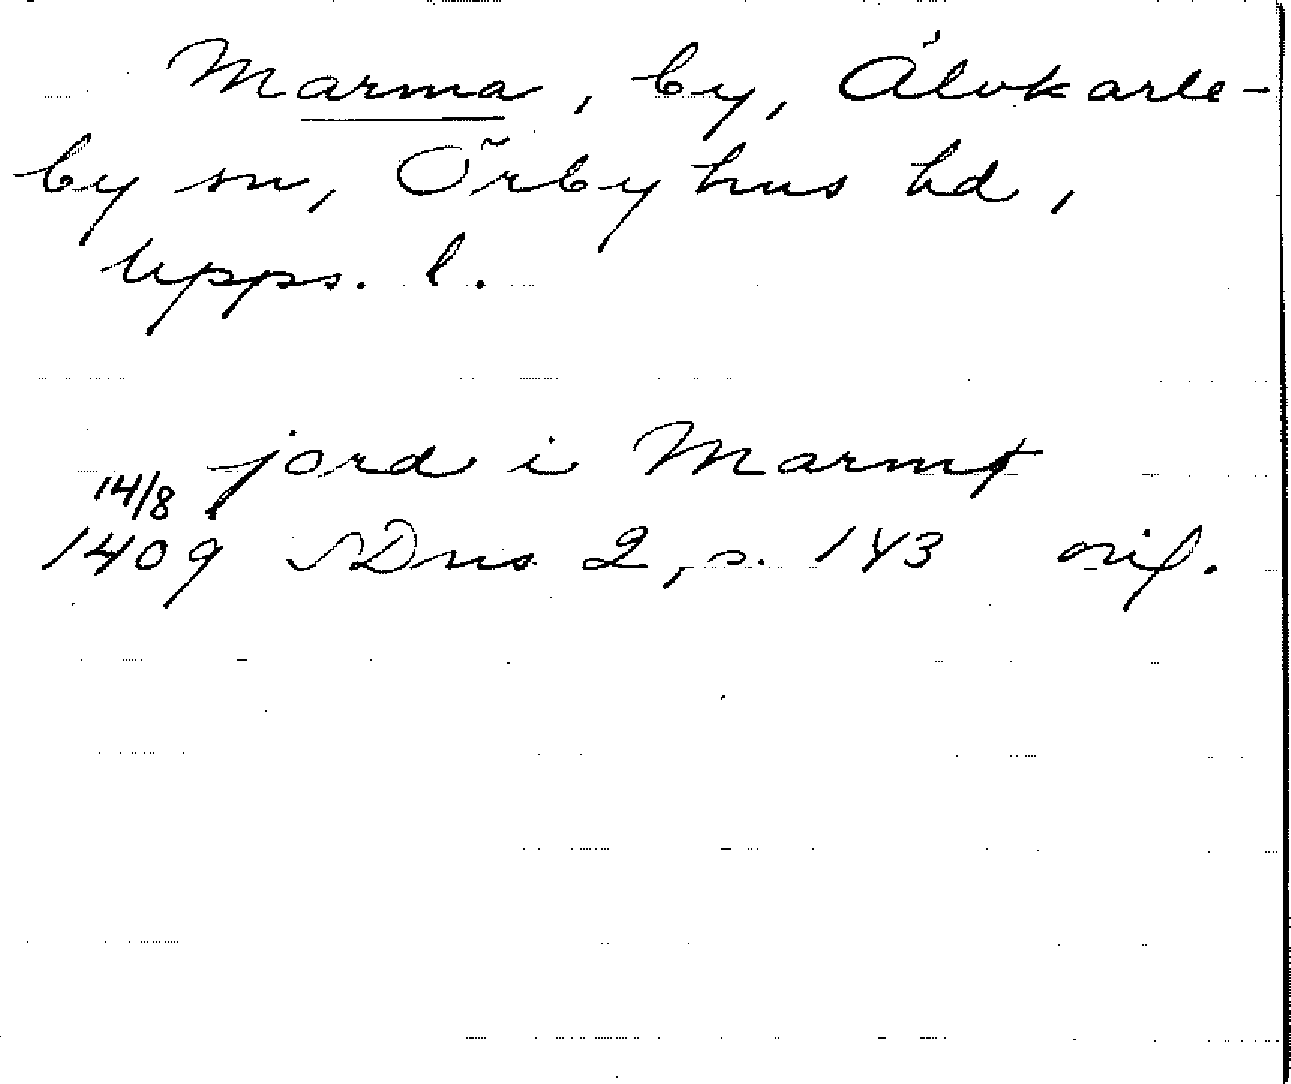 Marma, by, Älvkarle-
by sn, Örbyhus hd,
Upps. l.
jord i Marmø
14/8
1409 SDns 2, s. 143 orig.